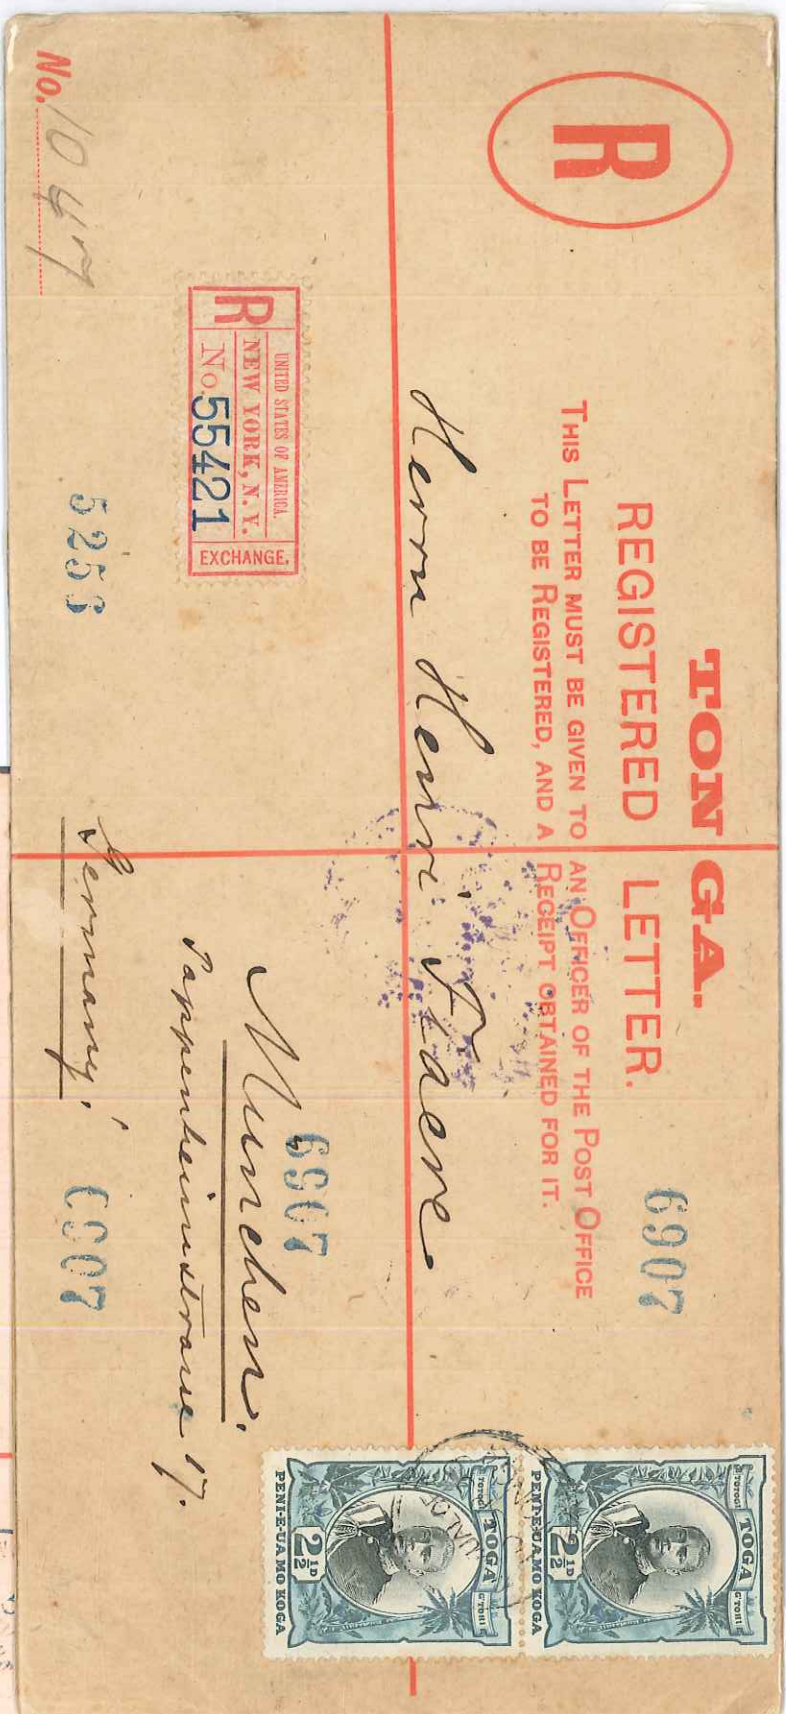 TONGA.
REGISTERED LETTER.
THIS LETTER MUST BE GIVEN TO AN OFFICER OF THE POST OFFICE
TO BE REGISTERED, AND A RECEIPT OBTAINED FOR IT.
R
6907
Herrn Henri Facre
6907
Munchen.
Pappenheimstrasse 17.
Germany!
6907
UNITED STATES OF AMERICA.
R NEW YORK, N. Y.
No. 55421
EXCHANGE.
5253
No. 1047
TOTOGI TOGA G TOHI
2½D
PENI-E-UA MO KOGA
TOTOGI TOGA G TOHI
2½D
PENI-E-UA MO KOGA